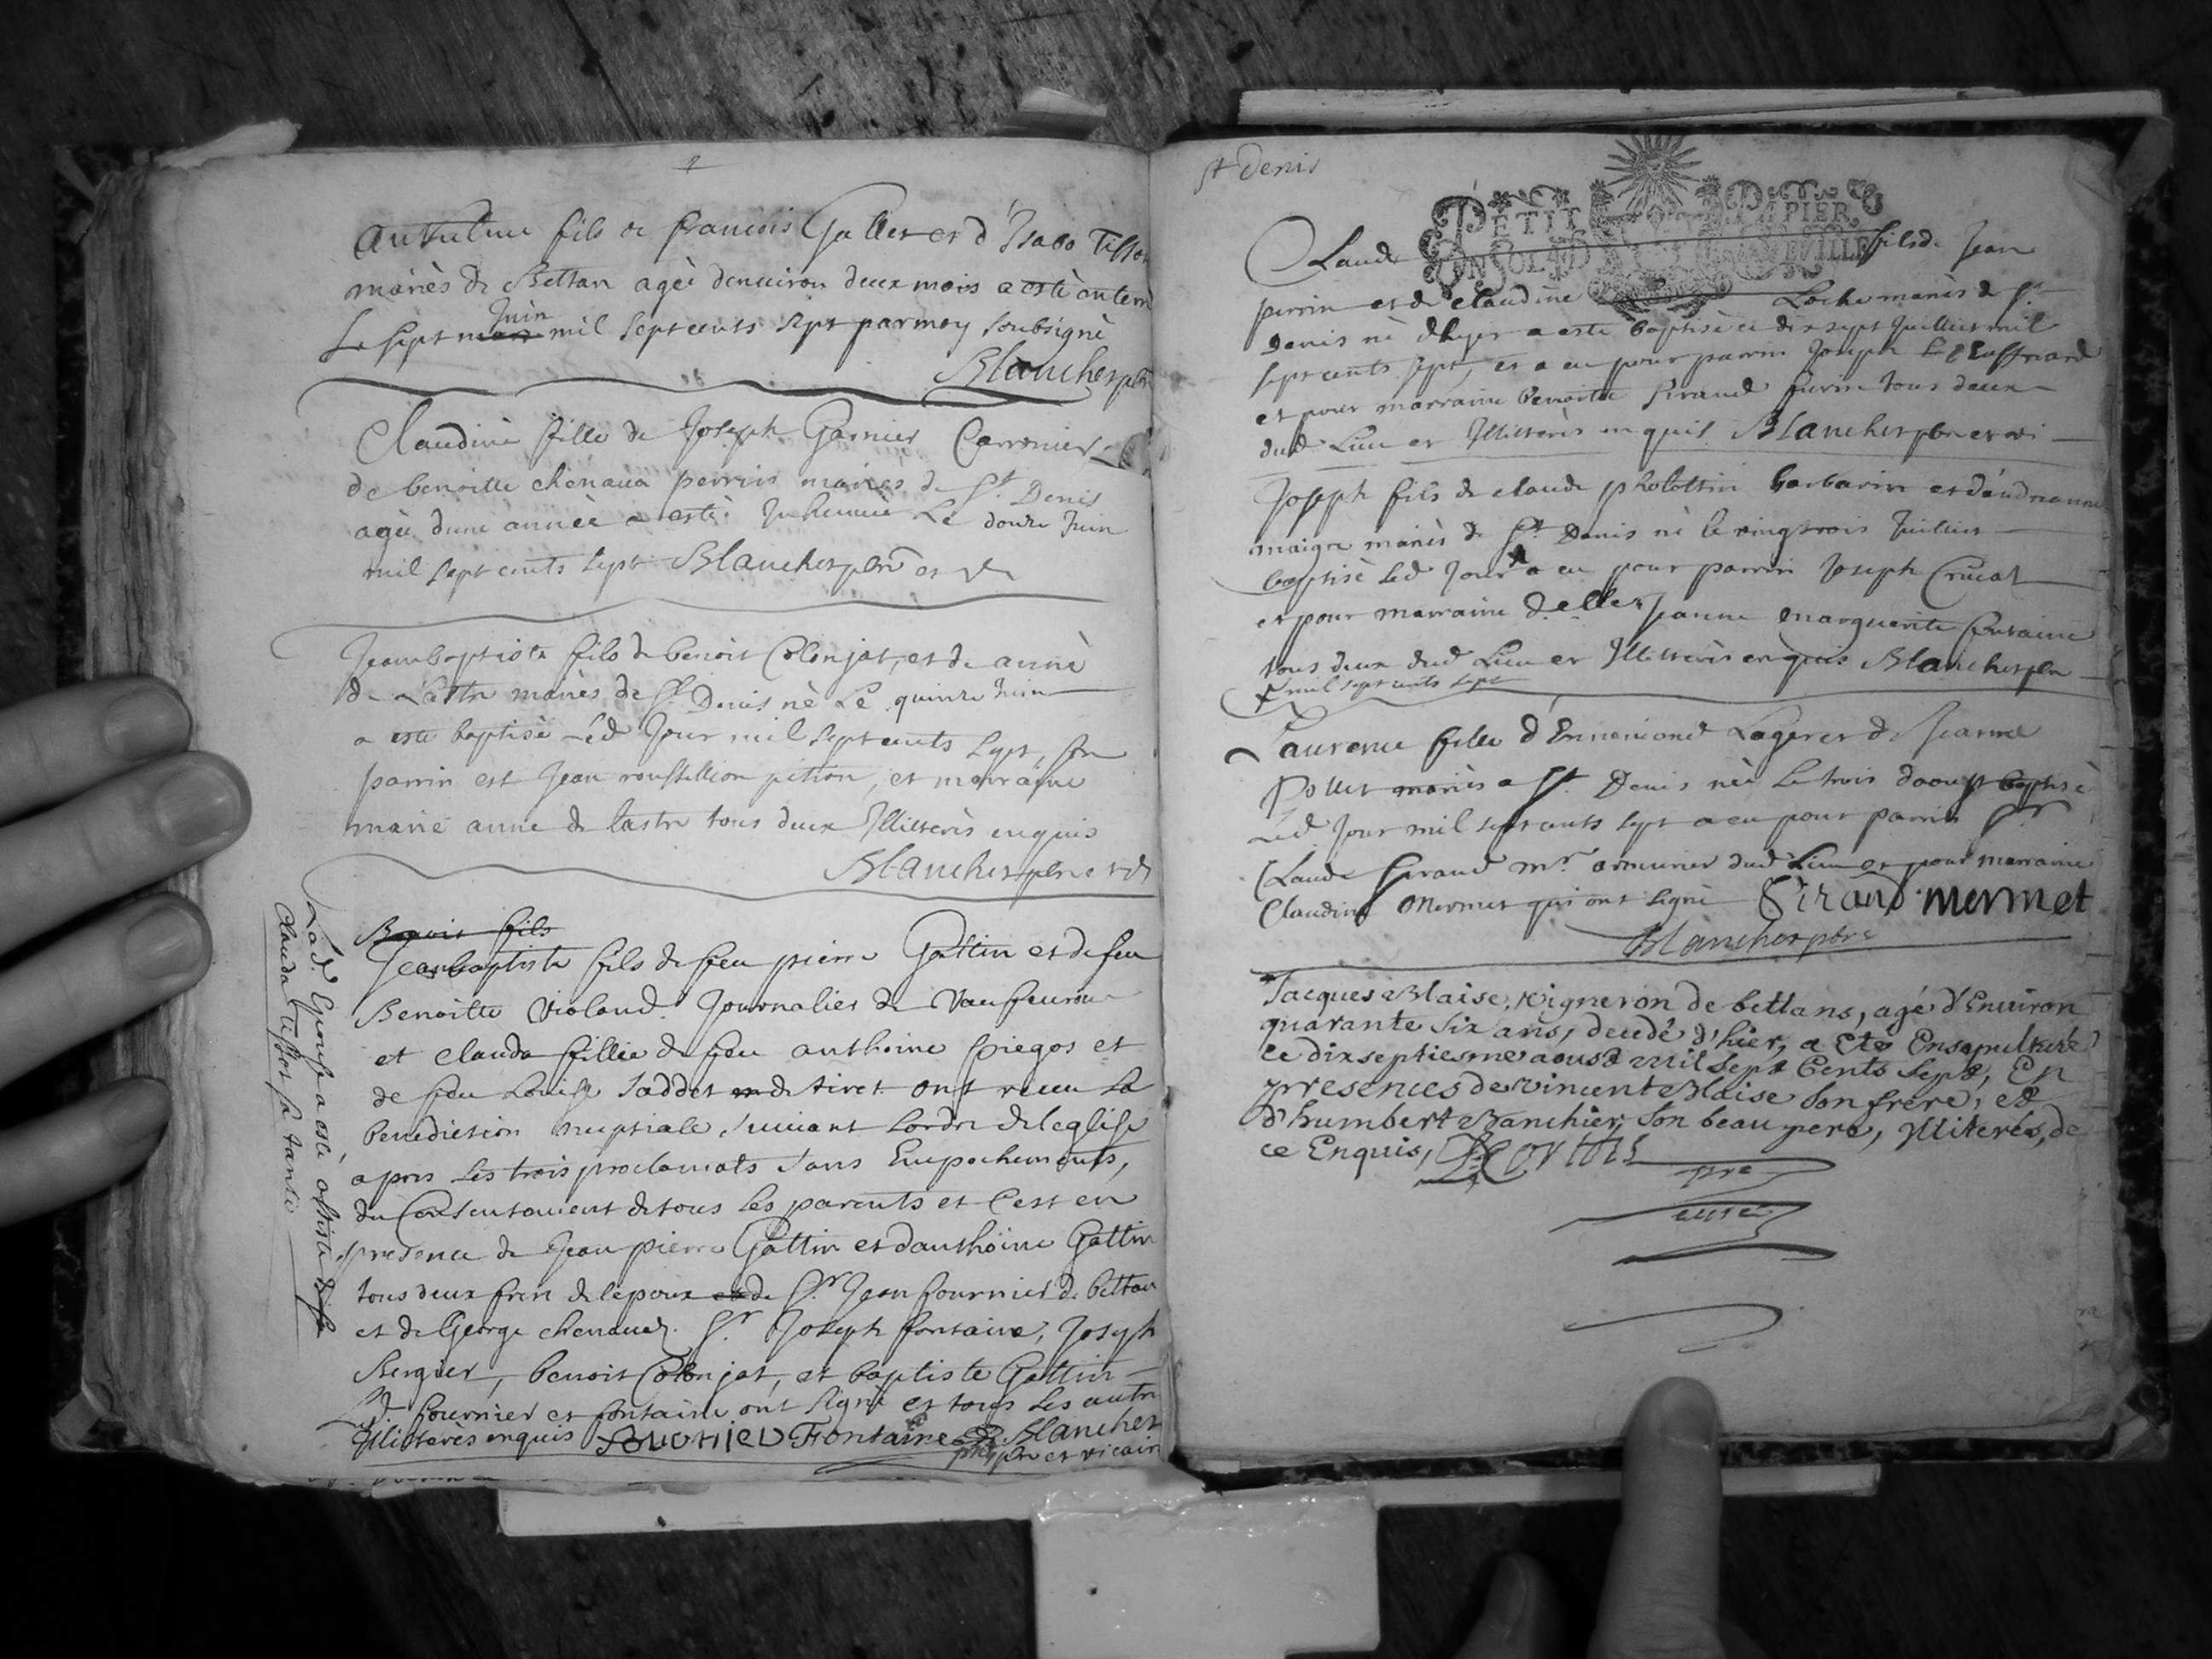 Anthelme fils de francois Gallet et d'Isabo Tissot
mariès de Bettan agèe denuiron deux mois a estè enterré
Le sept mars Juin mil sept cents sept par moy soubsignè
Blanchet pbre
Claudine fille de Joseph Garnier Carronier
de benoitte chenaua perrin mariès de St Denis
agèe dune annèe a estè Inhumèe Le douze Juin
mil sept cents sept Blanchet pbre et v
Jeanbaptiste fils de benoit Colonjat, et de annè
de Lastre mariès de St Denis nè Le quinze Juin
a este baptisè Led Jour mil sept cents sept, son
parrin est Jean roussillion pition, et marraine
marie anne de lastre tous deux Illiterès enquis
Blanchet pbre et v
Benoit fils
Jeanbaptiste fils de feu pierre Gottin et de feu
Benoitte Violand Journalier de Vaufeuroux
et clauda fillie de feu anthoine piegos et
de feu Louise Jaddet de tiret ont receu La
benediction nuptiale suiuant Lordre de leglise
apres Les trois proclamats sans Empechements,
du Consentement de tous Les parents et c'est en
presence de Jean pierre Gottin et danthoine Gottin
tous deux frere de lepoux et de Sr Jean fournier de bettan
et de George chenaua Sr Joseph fontaine, Joseph
Bergier, benoit Colonjat, et baptiste Gottin
Led fournier et fontaine ont signè et tous Les autres
Illiterès enquis fournier Fontaine Blanchet
pbre et vicaire
Lad. Epouse a estè assistè de
Clauda tissot sa tante
St Denis
PETIT PAPIER
Claude fils de Jean
perrin et de claudine Loche mariès de St
Denis nè dhyer a este baptisè ce dix sept Juillet mil
sept cents sept, et a eu pour parrin Joseph
et pour marraine benoitte Siraud perrin tous deux
dud Lieu et Illiterès enquis Blanchet pbre et vi
Joseph fils de claude pholottin barbarin et dandreanne
maigre mariès de St Denis nè le vingt trois Juillet
baptisè Led Jour a eu pour parrin Joseph Crucat
et pour marraine Delle Jeanne marguerite fontaine
tous deux dud Lieu et Illiterès enquis Blanchet pbre
mil sept cents sept
Laurence fille d'Ennemond Lager et de Jeanne
Pollet mariès a St Denis nèe Le trois daoust baptisè
Led Jour mil sept cents sept a eu pour parrin Sr
Claude Siraud mr armurier dud Lieu et pour marraine
Claudine Mermet qui ont signè Siraud mermet
Blanchet pbre
Jacques Blaise, vigneron de bettans, agé d'Enuiron
quarante six ans, decedé d'hier, a eté Ensepulturé
ce dixseptiesme aoust mil sept Cents sept, En
presences de vincent Blaise son frere, et
d'humbert Banchier, son beau pere, Illiterés, de
ce Enquis,
pre
curé